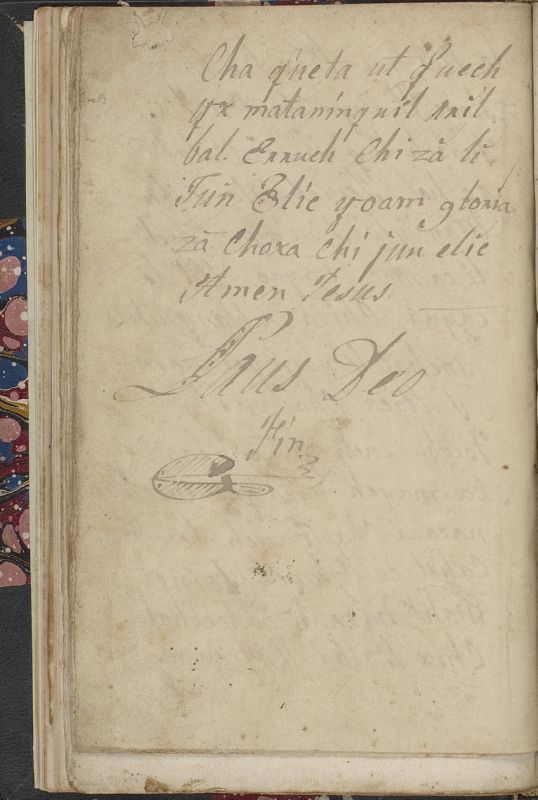 Cha q̃neta ut q̃uech
yx mataninquil xnil
bal. Ennuch Chi zã li
Jun Elic yoam gloria
zã Choxa Chi jun elic
Amen Jesus
Laus Deo
Fin